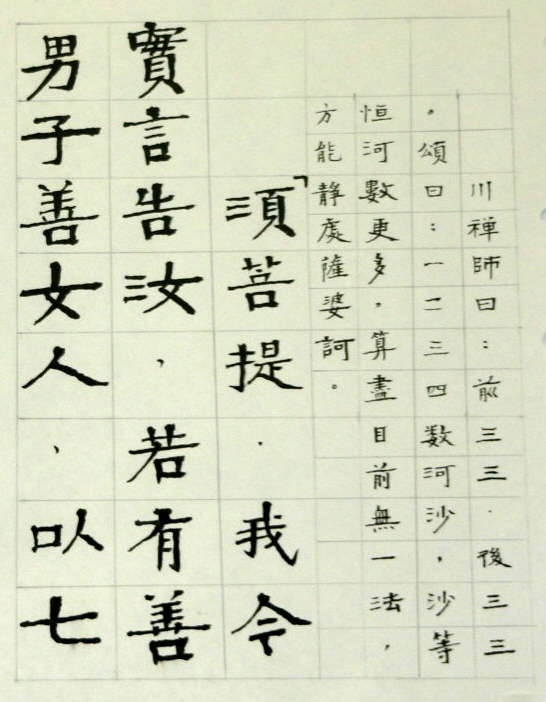 川禅師曰：前三三．後三三
。頌曰：一二三四数河沙，沙等
恒河數更多，算盡目前無一法，
方能静處薩婆訶。
「須菩提．我今
實言告汝，若有善
男子善女人、以七